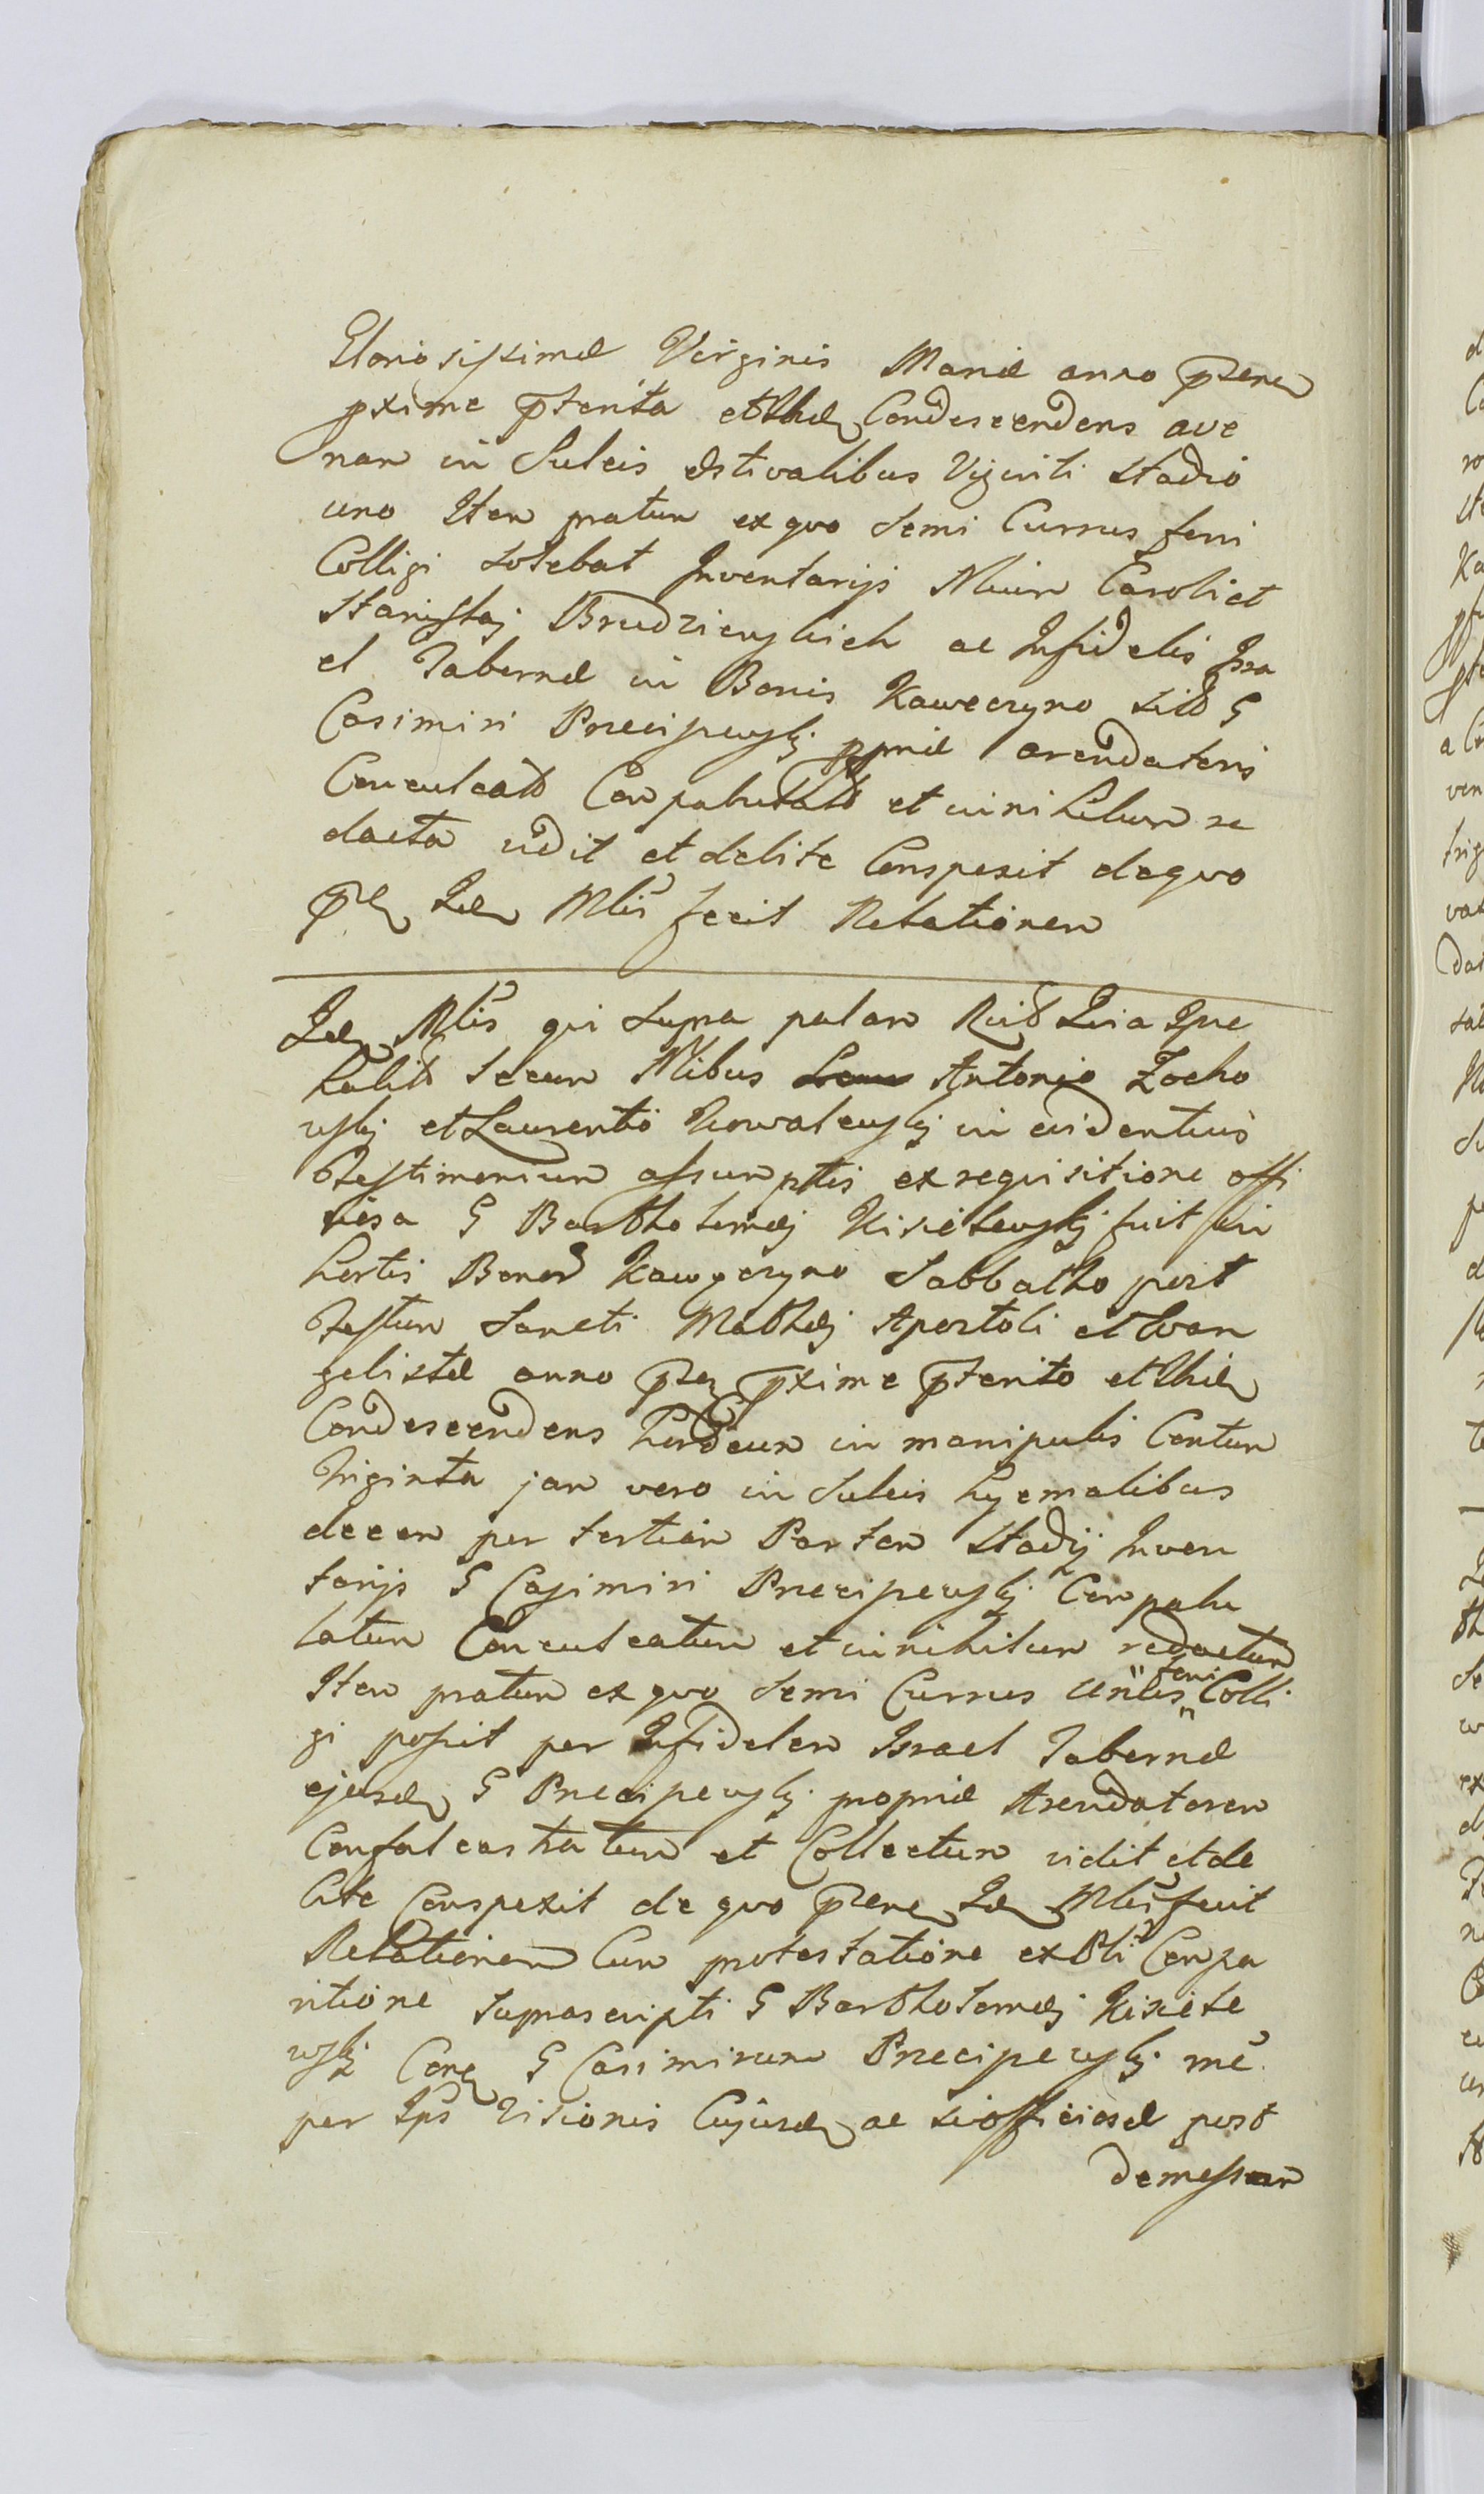 Gloriosissimæ Virginis Mariæ anno pnte
pxime pterita et Ibid Condescendens ave
nam in Sulcis æstivalibus Viginti stadio
uno Item pratum ex quo Semi Currus feni
Colligi solebat Inventarijs Nlium Caroli et
Stanislaj Brudzienskich ac Infidelis Isra
el Tabernæ in Bonis Kaweczyno sitæ G
Casimiri Przeciszewskj ppriæ arendatoris
Conculcata Conpabulata et in nihilum re
dacta vidit et delite Conspexit de quo
Idem Mlis fecit Relationem
Idem Mlis qui supra palam Quia Ipse
habitis secum Nlibus Antonio Zocho
wskj et Laurentio Kowalewskj in evidentius
Testimonium assumptis ex requisitione offi
ciosa G Bartholomæj Kisielewskj fuit in
hortis Bonor Kawęczyno Sabbatho post
Festum Sancti Mathæj Apostoli et Evan
gelistæ anno pnte pxime pterito et Ibid
Condescendens hordeum in manipulis Centum
triginta jam vero in Sulcis hyemalibus
decem per tertiam Partem stadij Inven
tarijs G Casimiri Przeciszewskj Conpabu
latum Conculcatum et in nihilum redactum
Item pratum ex quo Semi Currus unius feni Colli
gi possit per Infidelem Israel Tabernæ
ejusdem G Przeciszewskj propriæ Arendatorem
Confalcastratum et Collectum vidit et de
lite Conspexit de quo Idem Mlis fecit
Relationem Cum protestatione ex Conpa
ritione suprascripti G Bartholomæj Kisiele
wskj G Casimirum Przeciszewskj
per Visionis Cujusdem ac post
demessam